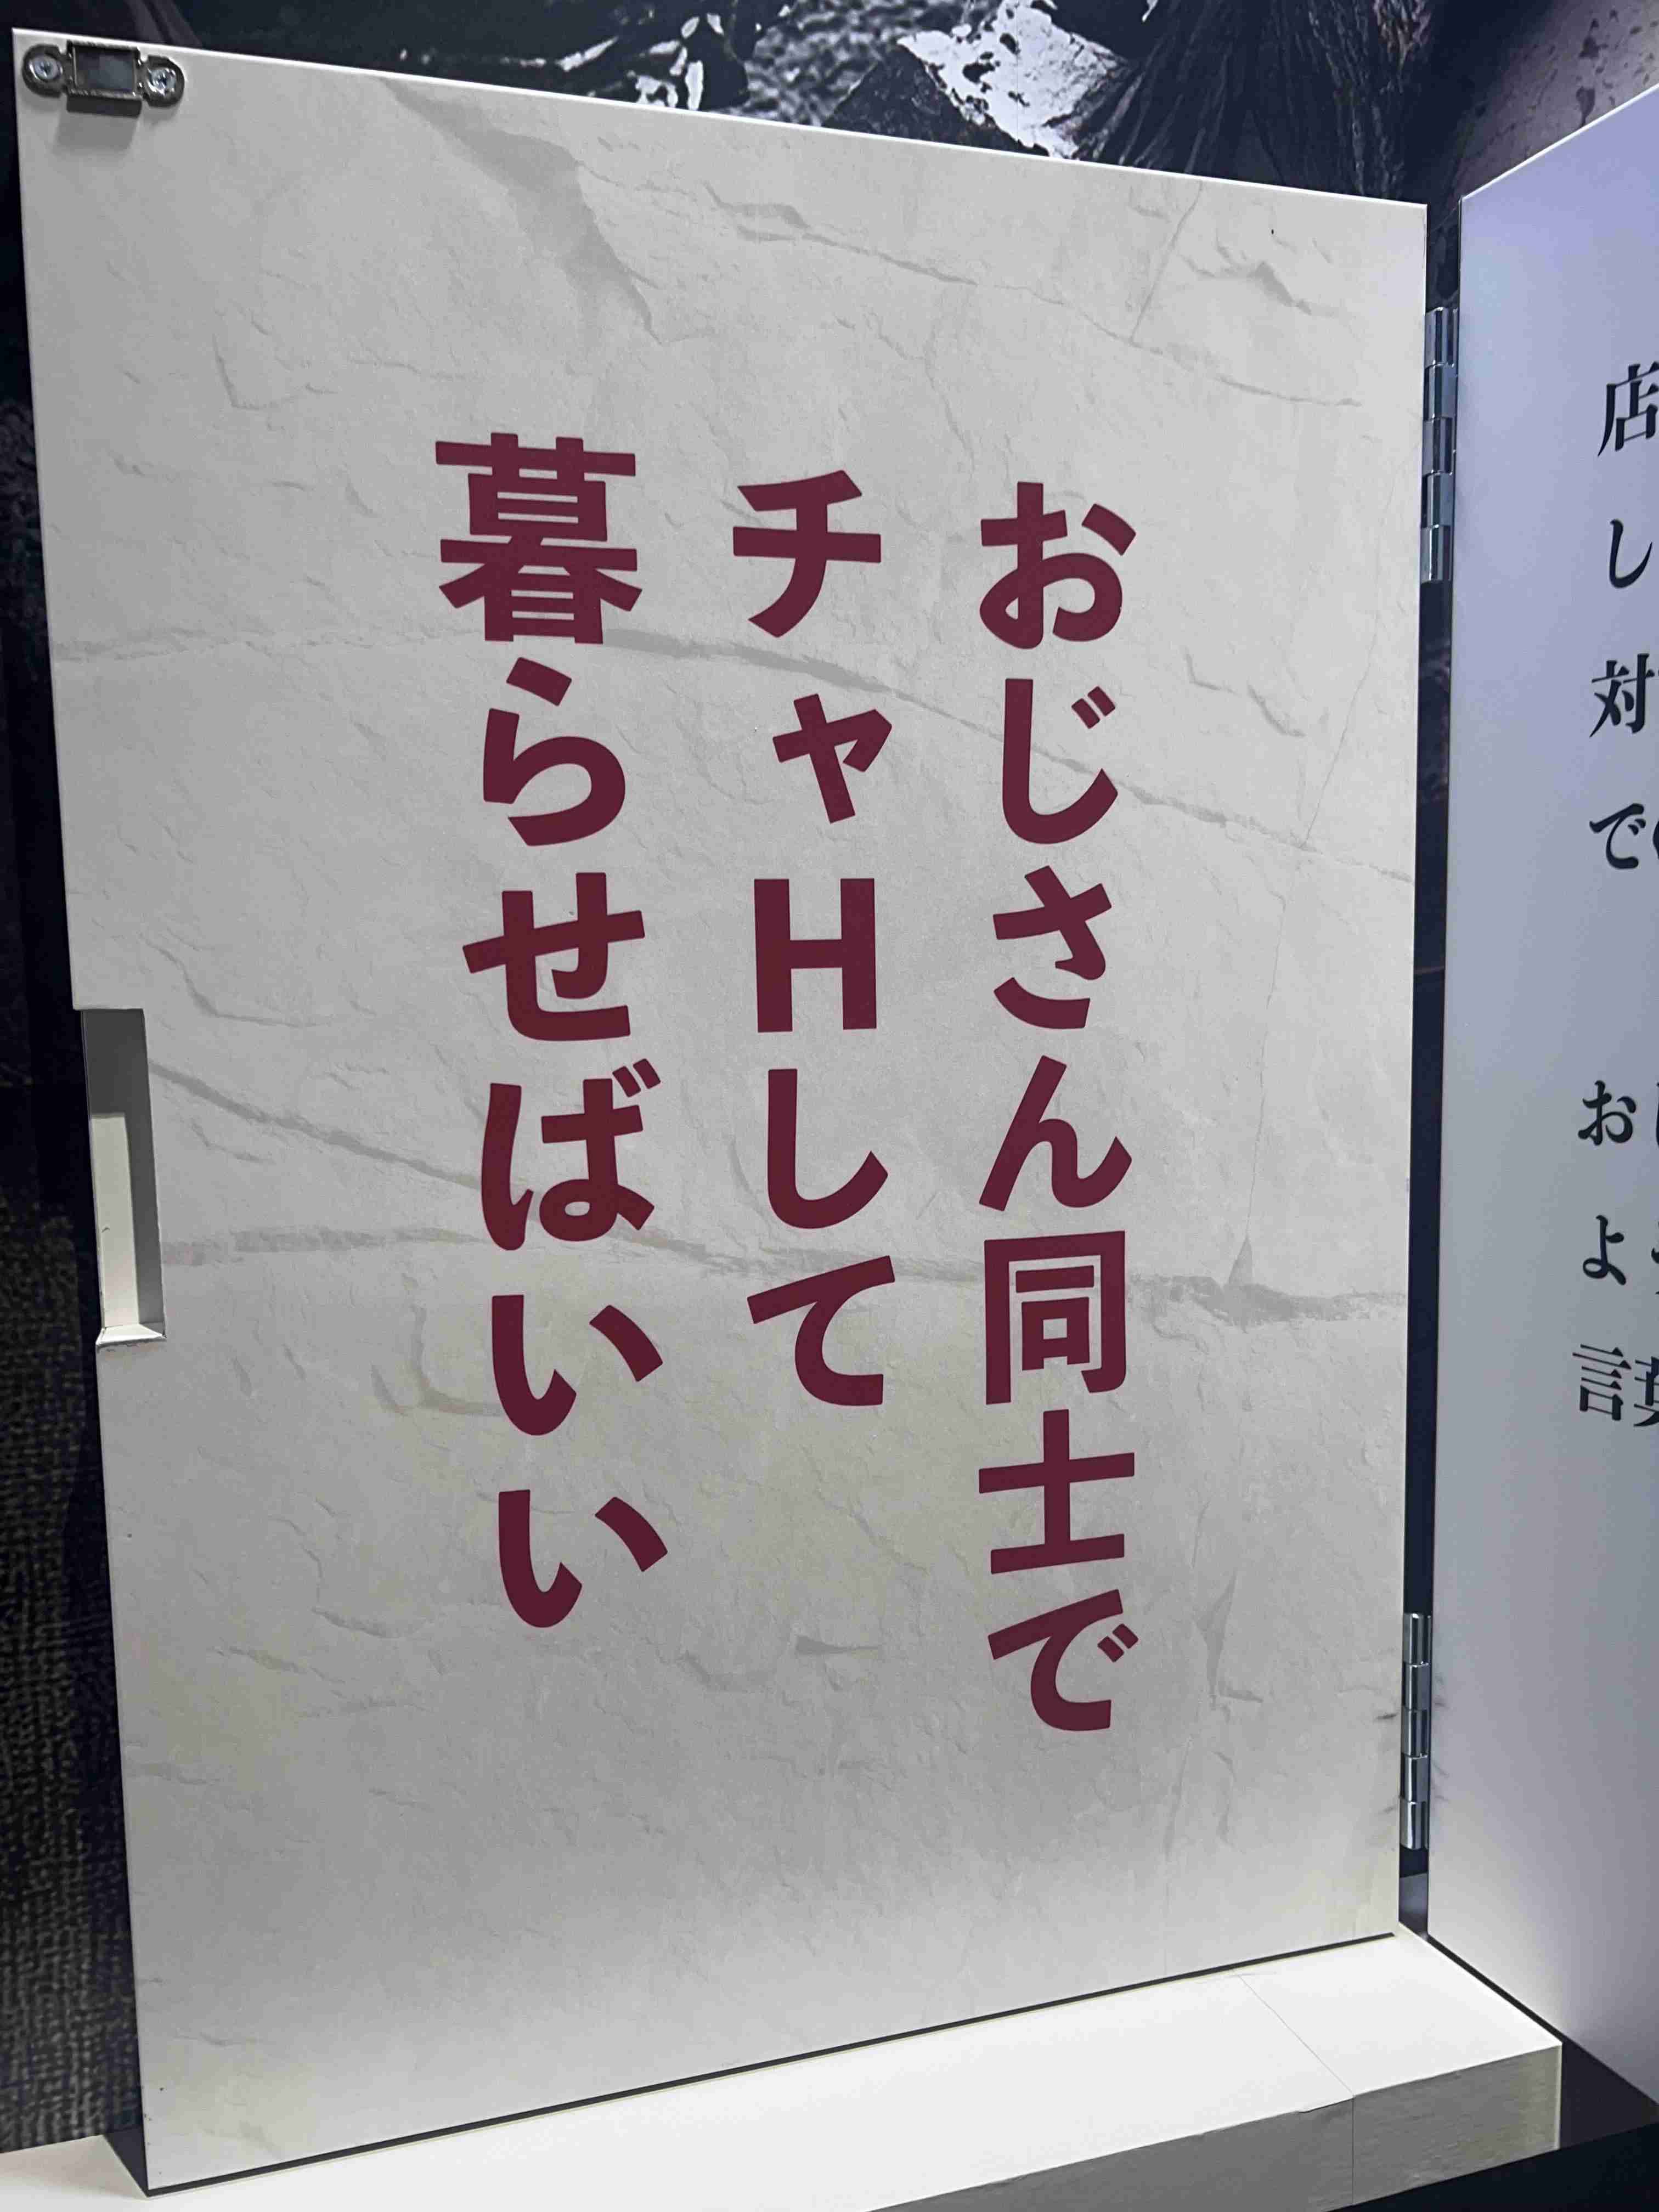 おじさん同士で
チャHして
暮らせばいい
店
し
対
で
お
よ
言葉